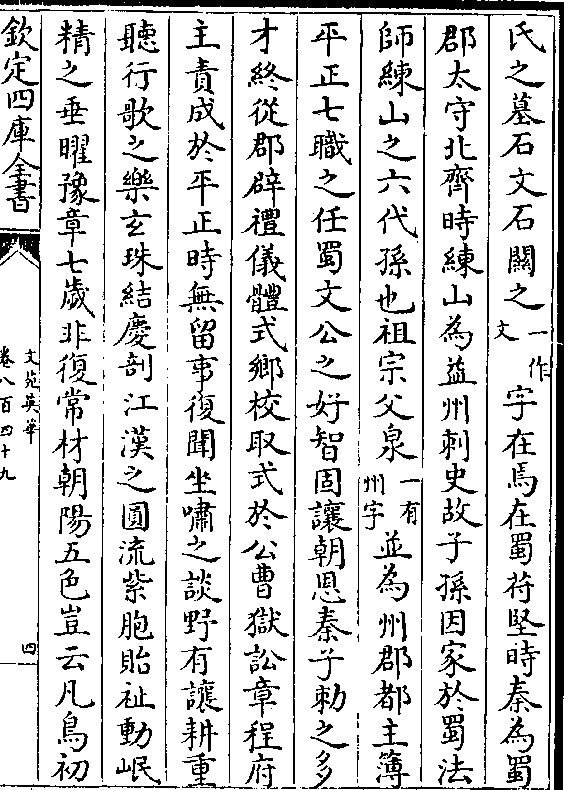 氏之墓石文石闕之一作文字在焉在蜀苻堅時秦為蜀
郡太守北齊時練山為益州刺史故子孫因家於蜀法
師練山之六代孫也祖宗父泉一有州字並為州郡都主簿
平正七職之任蜀文公之好智固讓朝恩秦子勅之多
才終從郡辟禮儀體式鄉校取式於公曹獄訟章程府
主責成於平正時無留事復聞坐嘯之談野有讓耕重
聽行歌之樂玄珠結慶剖江漢之圓流紫胞貽祉動岷
精之垂曜豫章七歲非復常材朝陽五色豈云凡鳥初
欽定四庫全書
文苑英華
卷八百四十九
四